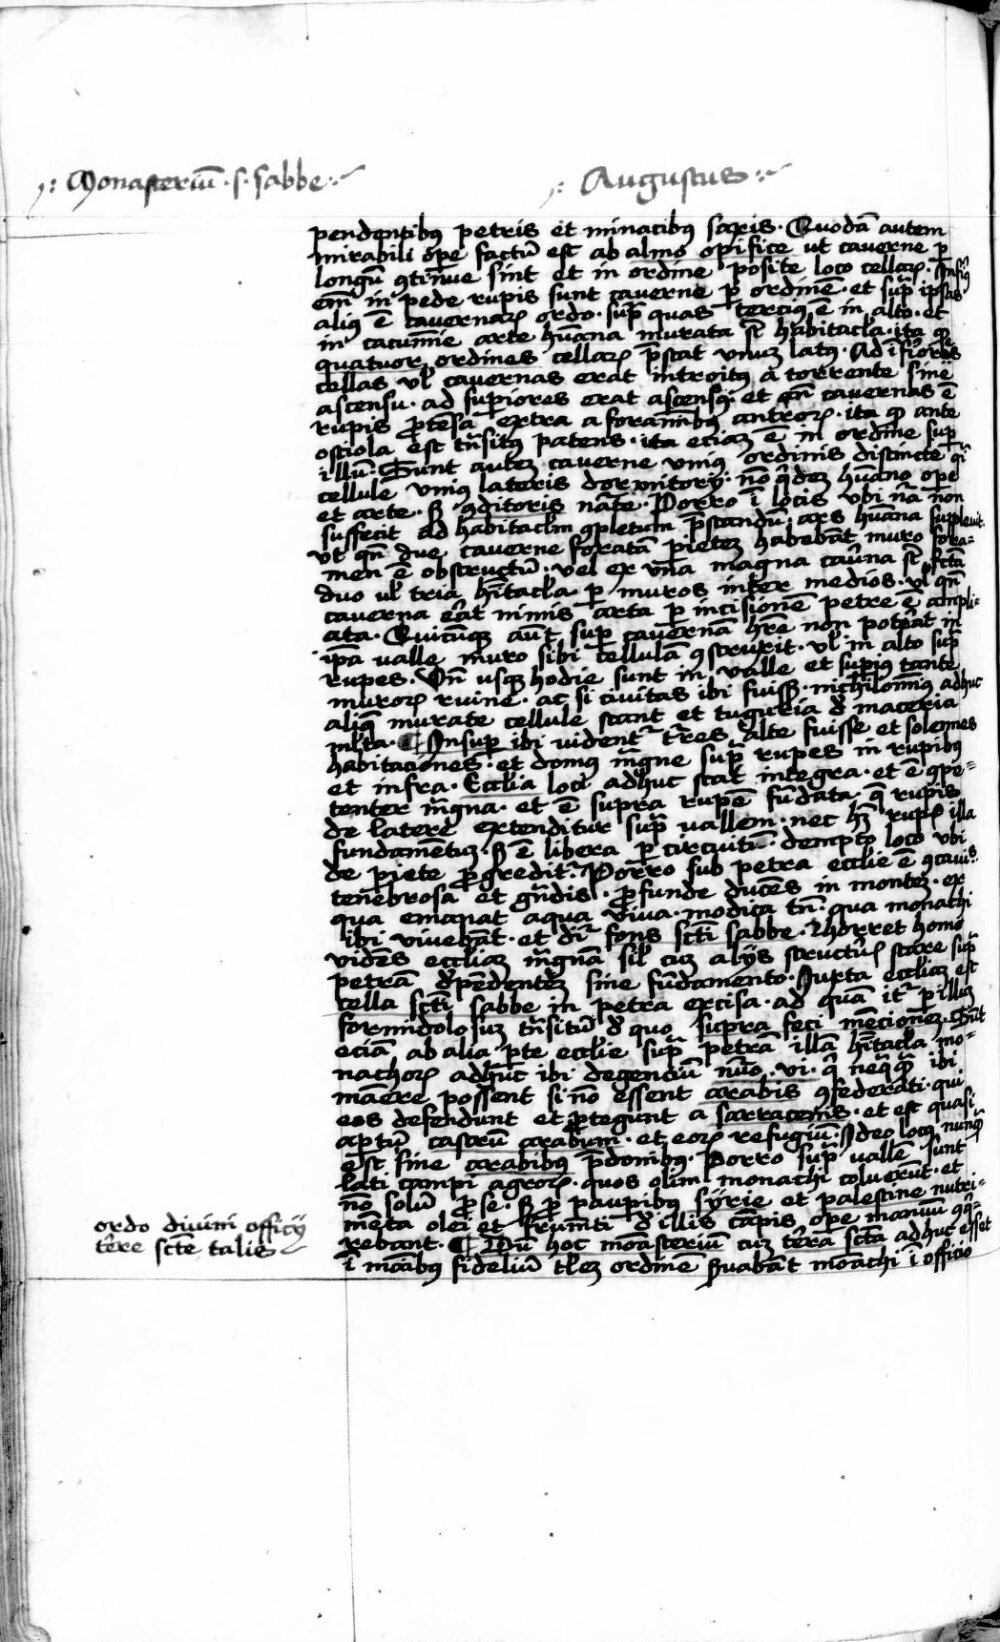 Monasteriū · s · sabbe
Augustus
pendentibꝰ petris et minacibꝰ saxis · Quodā autem
mirabili ope factū est ab almo opifice ut caverne p
longū ꝯtinue sint et in ordine posite loco cellaꝝ · Infiꝰ
em̄ in pede rupis sunt caverne p ordinē · et supͣ ipsas
aliꝰ ē cavernaꝝ ordo · supͣ quas terciꝰ ē in alto · et
in cacumīe arte hūana murata st̄ habitacl̄a · ita qꝫ
quatuor ordines cellaꝝ p̄stat vnuꝫ latꝰ · Ad īfiōres
cellas vl̄ cavernas erat introitꝰ a torrente sine
ascensu · ad supiores erat ascensꝰ · et qn̄ cavernas ē
rupis p̱tēsa extra a foraminibꝰ antroꝝ · ita ꝙ ante
ostiola est trāsitꝰ patens · ita eciaꝫ ē in ordine sup
illū · Sunt auteꝫ caverne vniꝰ ordinis distincte qͣsi
cellule vniꝰ lateris dormitorij · nō qͥdeꝫ hūano ope
et arte · sꝫ ꝯditoris nāte · Porro ī locis vbi nāa non
suffecit ad habitacl̄m ꝯpletum p̄standū · ars hūana supplevit
vt qn̄ due caverne foratā pieteꝫ habebāt muro fora-
men ē obstructū · vel ex vna magna cav̄na st̄ p̱fcta
duo vl̄ tria hītacl̄a · p muros inter medios · vl̄ qn̄
caverna erat nimis arta p incisionē petre ē ampli-
ata · Quicūqꝫ aūt sup cavernā hr̄e non potat in
ipa valle muro sibi cellulā ꝯstruxit · vl̄ in alto supͣ
rupes · Vn̄ usqꝫ hodie sunt in valle et supiꝰ tante
muroꝝ ruine · ac si civitas ibi fuissꝫ · nichilominꝰ adhuc
aliqͣ murate cellule stant et tuguria d̄ maceria
ml̄ta · ¶ Insup ibi vident᷑ tr̄res alte fuisse et solemnes
habitaciones · et domꝰ magne supͣ rupes in rupibꝰ
et infra · Eccl̄ia loci adhuc stat integra · et ē ꝯpe-
tenter mgna · et ē supra rupē fūdata · qͣ rupis
de latere extenditur supͣ vallem · nec hꝫ rupes illa
fundamētuꝫ · sꝫ ē libera p circuitū · dempto loco vbi
de piete p̱gredit᷑ · Porro sub petra eccl̄ie ē ꝯcavitas
tenebrosa et grādis · p̱funde ducēs in monteꝫ · ex
qua emanat aqua viva · modica tn̄ · qua monachi
ibi vivebāt · et dr̄ fons sctī sabbe · Horret homo
vidēs eccl̄iaꝫ mgnā sil̄ cuꝫ alijs structūris stare supͣ
petrā dependenteꝫ sine fūdamento · Iuxta eccl̄iaꝫ est
cella sctī sabbe in petra excisa · ad quā it᷑ p illuꝫ
formidolosuꝫ trāsitū d̄ quo supra feci mēcioneꝫ · Sūt
eciā ab alia pte eccl̄ie supͣ petrā illā hītacl̄a mo-
nachoꝝ adhuc ibi degenciū nūo · vi · qͥ neqͣqͣ ibi
māere possent si nō essent arabis ꝯfederati · qui
eos defendunt et p̱tegunt a sarracenis · et est quasi
aptū castrū arabum · et eoꝝ refugiū · Ideo locꝰ nunqͣ
est sine arabibꝰ p̄donibꝰ · Porro supͣ vallē sunt
lati campi agroꝝ · quos olim monachi coluerūt · et
nō solū p̱ se · sꝫ p̱ paupibꝰ syrie et palestine nutri-
mēta olei et frumēti d̄ illis cāpis ope manuū ꝯqͥ-
rebant · ¶ Dū hoc monasteriū cuꝫ terra scta adhuc esset
ī manibꝰ fideliū taleꝫ ordinē s̄vabāt monachi ī officio
ordo divini officij
terre scte talis